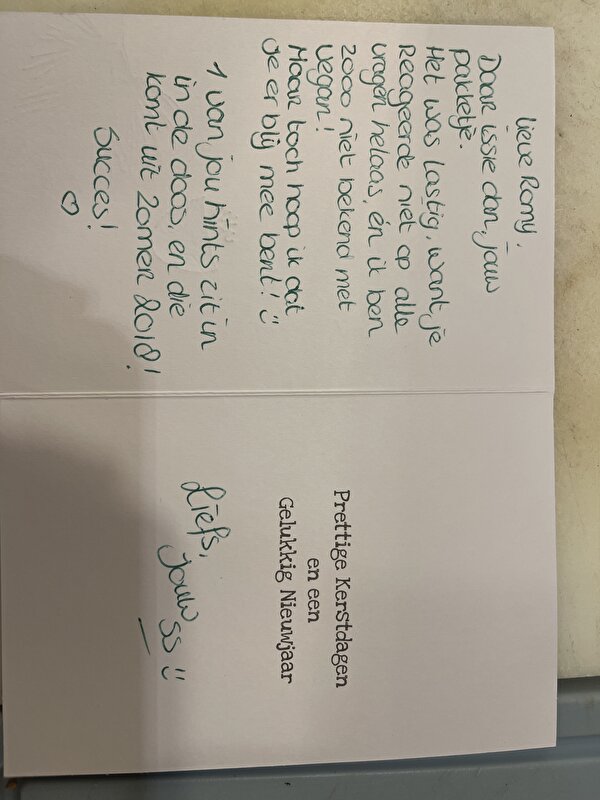 Lieve Romy,
Daar issie dan, jouw
pakketje.
Het was lastig, want je
Reageerde niet op alle
vragen helaas, én ik ben
zooo niet bekend met
vegan!
Maar toch hoop ik dat
je er blij mee bent! :)
1 van jou hints zit in
in de doos, en die
komt uit Zomer 2018!
Succes!
♡
Prettige Kerstdagen
en een
Gelukkig Nieuwjaar
Liefs,
jouw SS :)